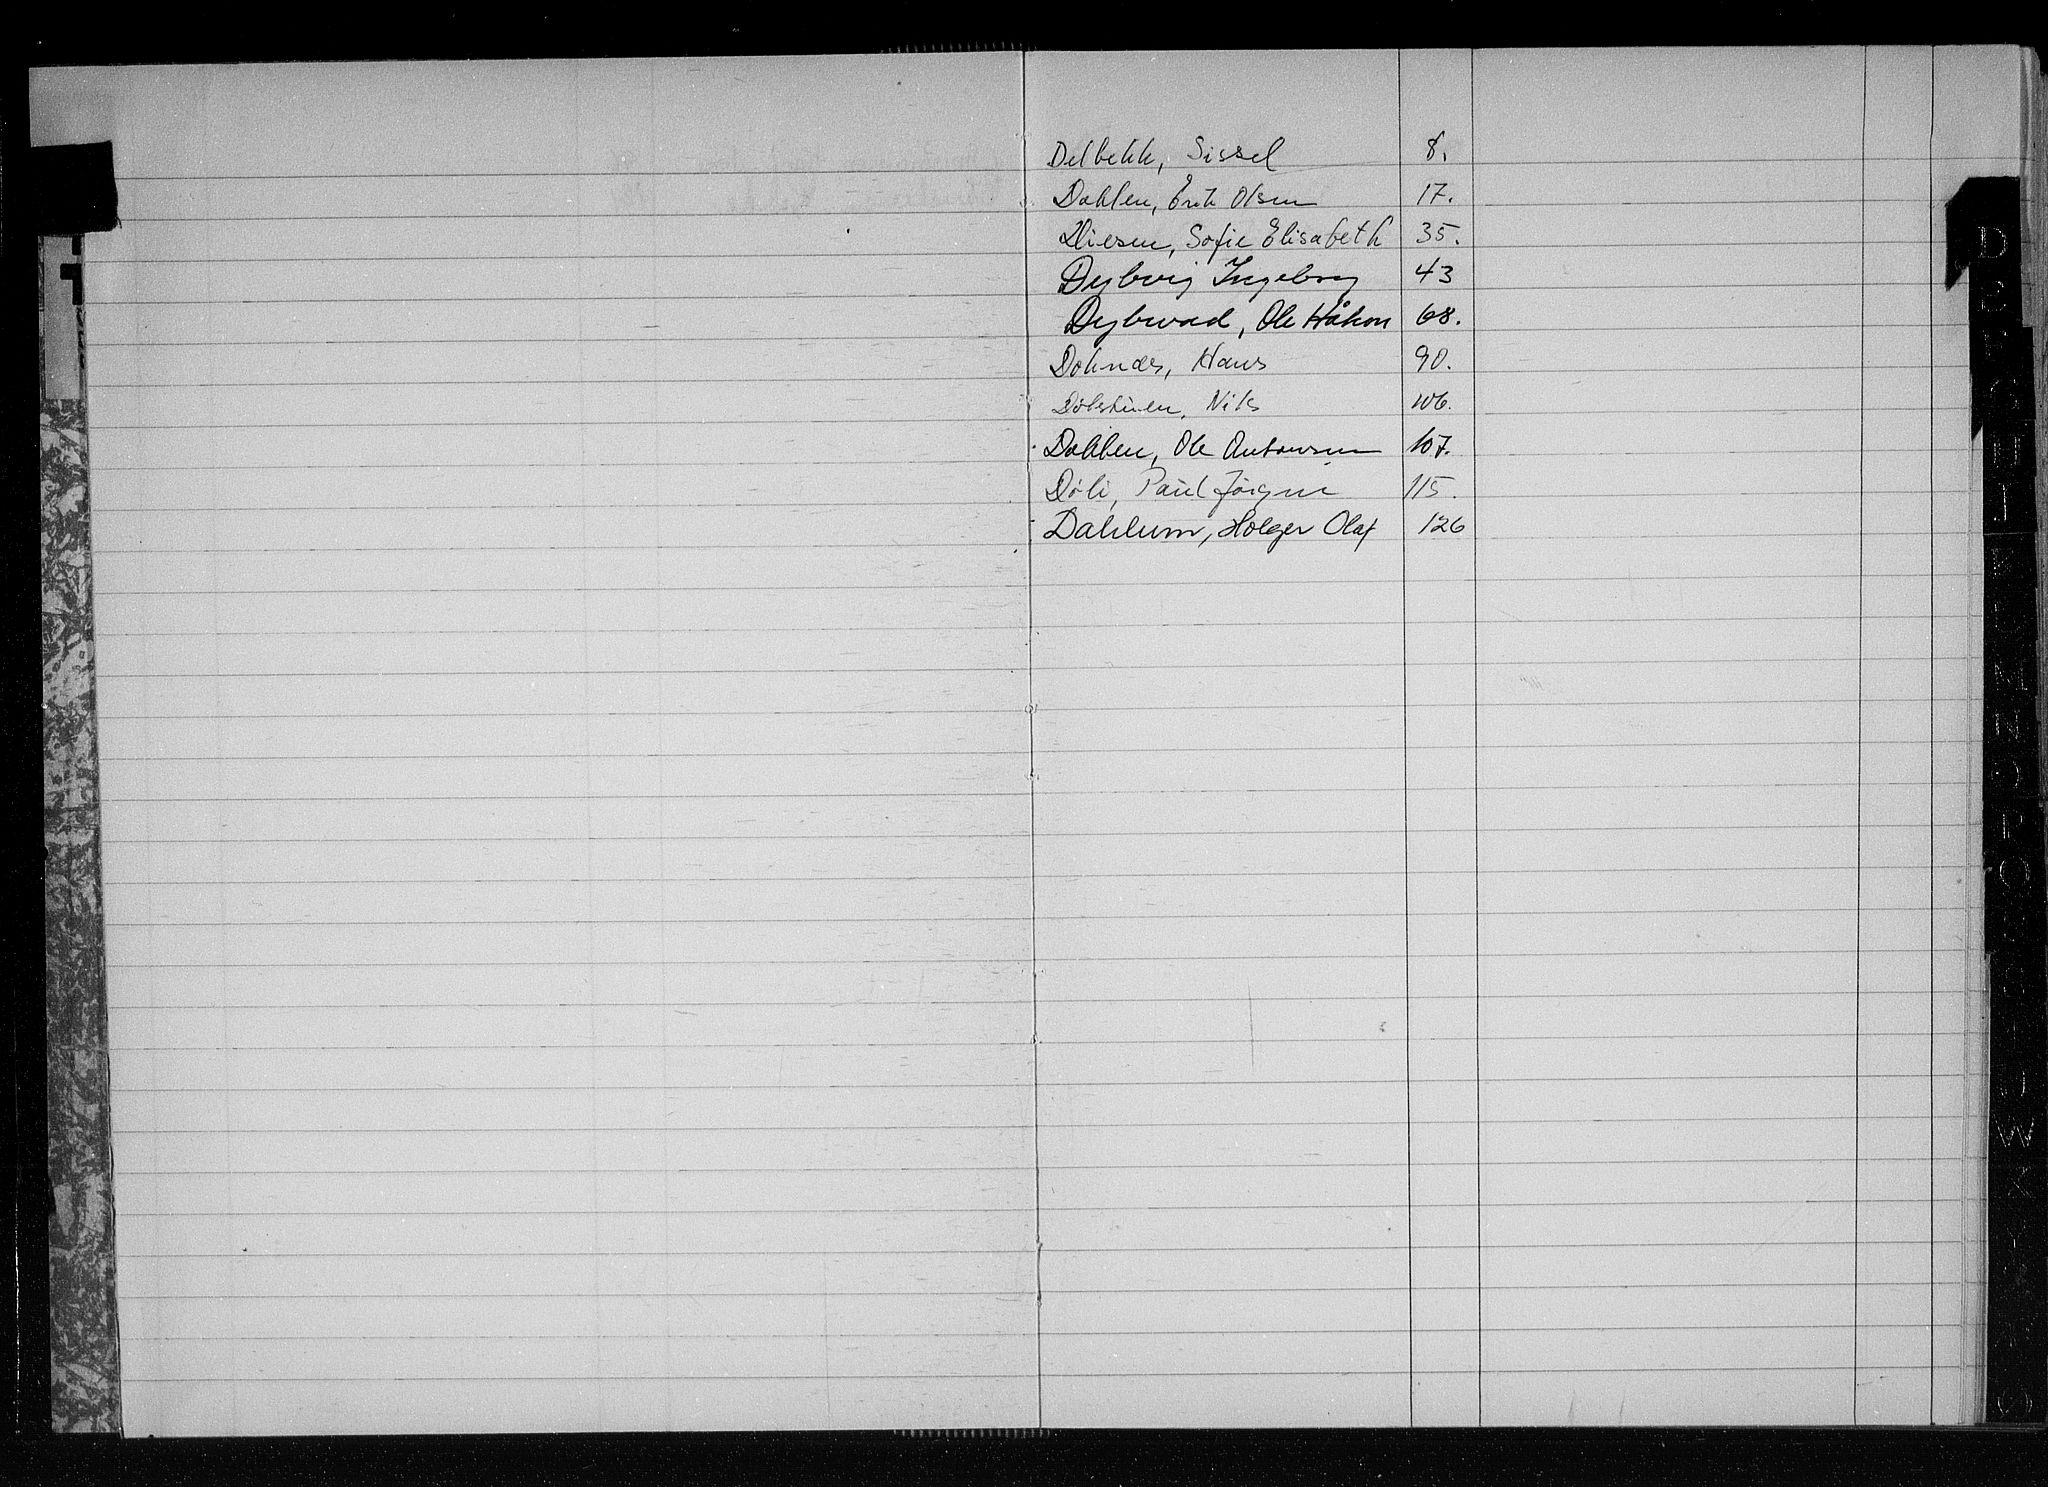 Delbekk, Sissel 8.
Dahlen, Erik Olsen 17.
Diesen, Sofie Elisabeth 35.
Dybvig Ingeborg 43
Dybwad, Ole Håkon 68.
Doknæs, Hans 90.
Nils 106.
Dahlen, Ole Antonsen 107.
Døli, Paul Jørgen 115.
Dahlum, Holger Olaf 126
D